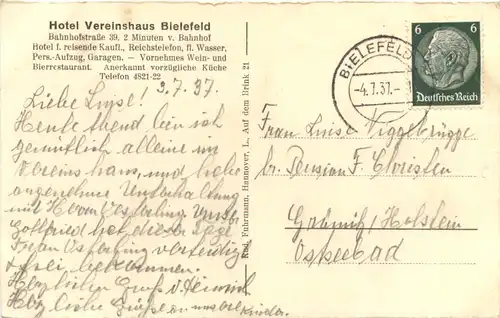 Hotel Vereinshaus Bielefeld
Bahnhofstraße 39, 2 Minuten v. Bahnhof
Hotel f. reisende Kaufl., Reichstelefon, fl. Wasser,
Pers.-Aufzug, Garagen. — Vornehmes Wein- und
Bierrestaurant. Anerkannt vorzügliche Küche
Telefon 4821-22
3.7.37.
Liebe Luise!
Heute Abend bin ich
gemütlich alleine im
Vereinshaus, und habe
angenehme Unterhaltung
mit Herrn Osterling. Unser
Gottfried hat diese Tage
Frau Osterling verteidigt
+ frei bekommen.
Herzlichen Gruß
Herzliche Grüße
Rud. Fuhrmann, Hannover, L., Auf dem Brink 21
BIELEFELD
-4.7.37.-
6 6
Deutsches Reich
Frau Luise
br. Pension F. Christen
Holstein
Ostseebad